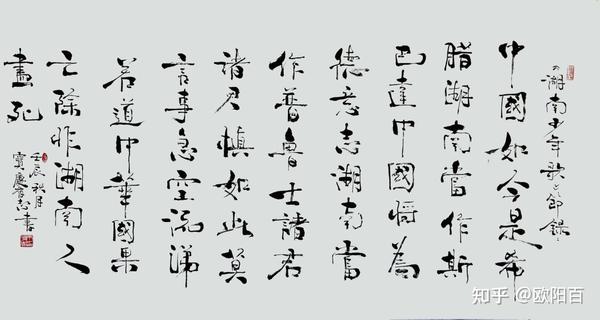 《湖南少年歌》節錄
中國如今是希
腊湖南當作斯
巴達中國將為
德意志湖南當
作普魯士諸君
諸君慎如此莫
言事急空流涕
若道中華國果
亡除非湖南人
盡死
壬辰秋月
寶慶書
知乎 @欧阳百